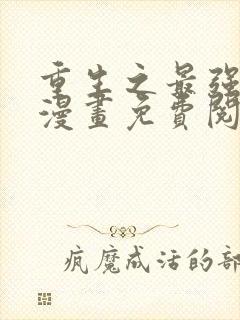 重生之最强
漫畫免費閱
疯魔成活的部